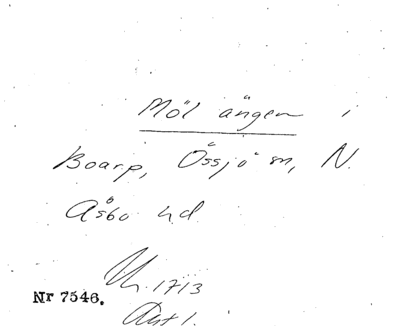 Möl ängen i
Boarp, Össjö sn, N.
Åsbo hd.
1713
Nr 7546.